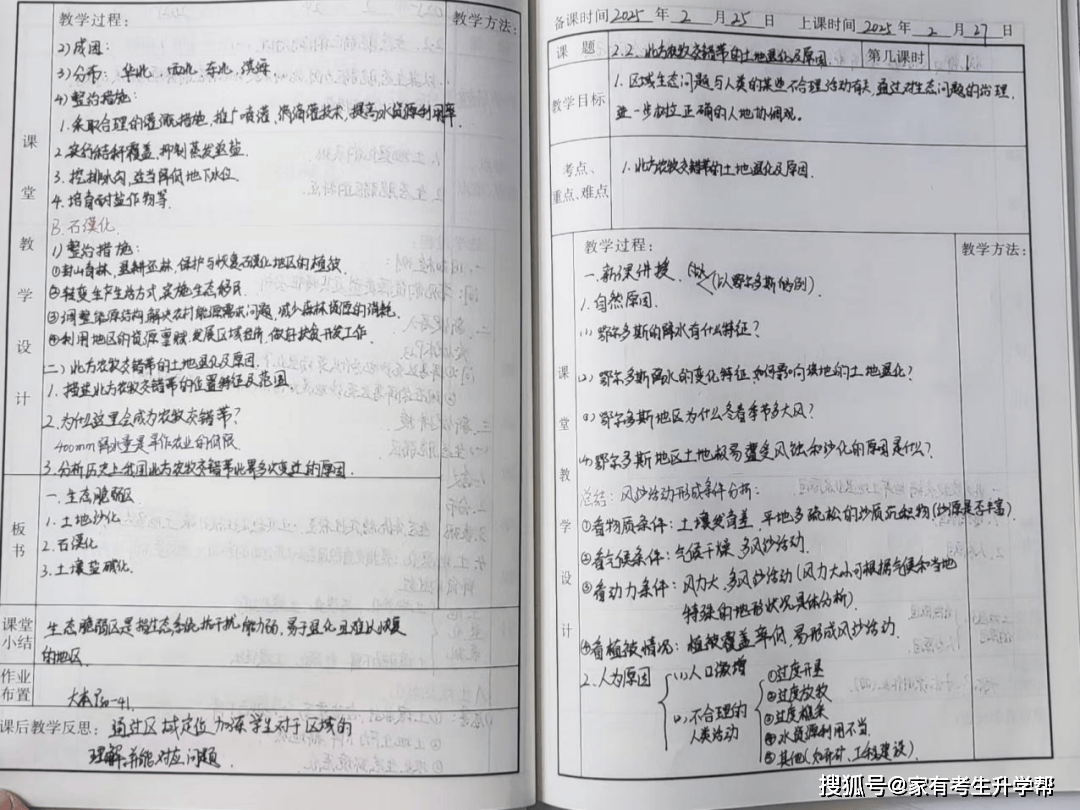 教学过程：
教学方法：
2)成因：
3)分布：华北 西北 东北 滨海
4)整治措施：
1.采取合理的灌溉措施，推广喷灌、滴灌技术，提高水资源利用率.
2.实行秸秆覆盖，抑制蒸发返盐.
3.挖排水沟，适当降低地下水位
4.培育耐盐作物等.
B.石漠化.
1)整治措施：
①封山育林，退耕还林，保护与恢复石漠化地区的植被.
②转变生产生活方式，实施生态移民
③调整能源结构，解决农村能源需求问题，减少森林资源的消耗.
④利用地区的资源禀赋，发展区域经济，做好扶贫开发工作.
二)北方农牧交错带的土地退化及原因.
1.描述北方农牧交错带的位置特征及范围
2.为什么这里会成为农牧交错带？
400mm降水量是旱作农业的低限
3.分析历史上我国北方农牧交错带北界多次变迁的原因.
课堂教学设计
板书
一.生态脆弱区
1.土地沙化
2.石漠化
3.土壤盐碱化.
课堂小结
生态脆弱区是指生态系统抗干扰能力弱，易于退化且难以恢复
的地区.
作业布置
大本P40-41.
课后教学反思：通过区域定位，加深学生对于区域的
理解，并能对应问题.
备课时间 2025 年 2 月 25 日 上课时间 2025 年 2 月 27 日
课题 2.2.北方农牧交错带的土地退化及原因 第几课时 1
教学目标
1.区域生态问题与人类的某些不合理活动有关，通过对生态问题的治理，
进一步树立正确的人地协调观。
考点、重点、难点
1.北方农牧交错带的土地退化及原因.
教学过程：
教学方法：
一.新课讲授.
(以鄂尔多斯为例).
1.自然原因.
(1)鄂尔多斯的降水有什么特征？
(2)鄂尔多斯降水的变化特征如何影响该地的土地退化？
(3)鄂尔多斯地区为什么冬春季节多大风？
(4)鄂尔多斯地区土地极易遭受风蚀和沙化的原因是什么？
总结：风沙活动形成条件分析：
①看物质条件：土壤发育差，平地多疏松的沙质沉积物(沙源是否丰富)
②看气候条件：气候干燥，多风沙活动.
③看动力条件：风力大，多风沙活动(风力大小可根据气候和当地
特殊的地形状况具体分析).
④看植被情况：植被覆盖率低，易形成风沙活动.
2.人为原因
(1)人口激增
(2)不合理的
人类活动
①过度开垦
②过度放牧
③过度樵采
④水资源利用不当.
⑤其他(如开矿、工程建设).
课堂教学设计
搜狐号@家有考生升学帮